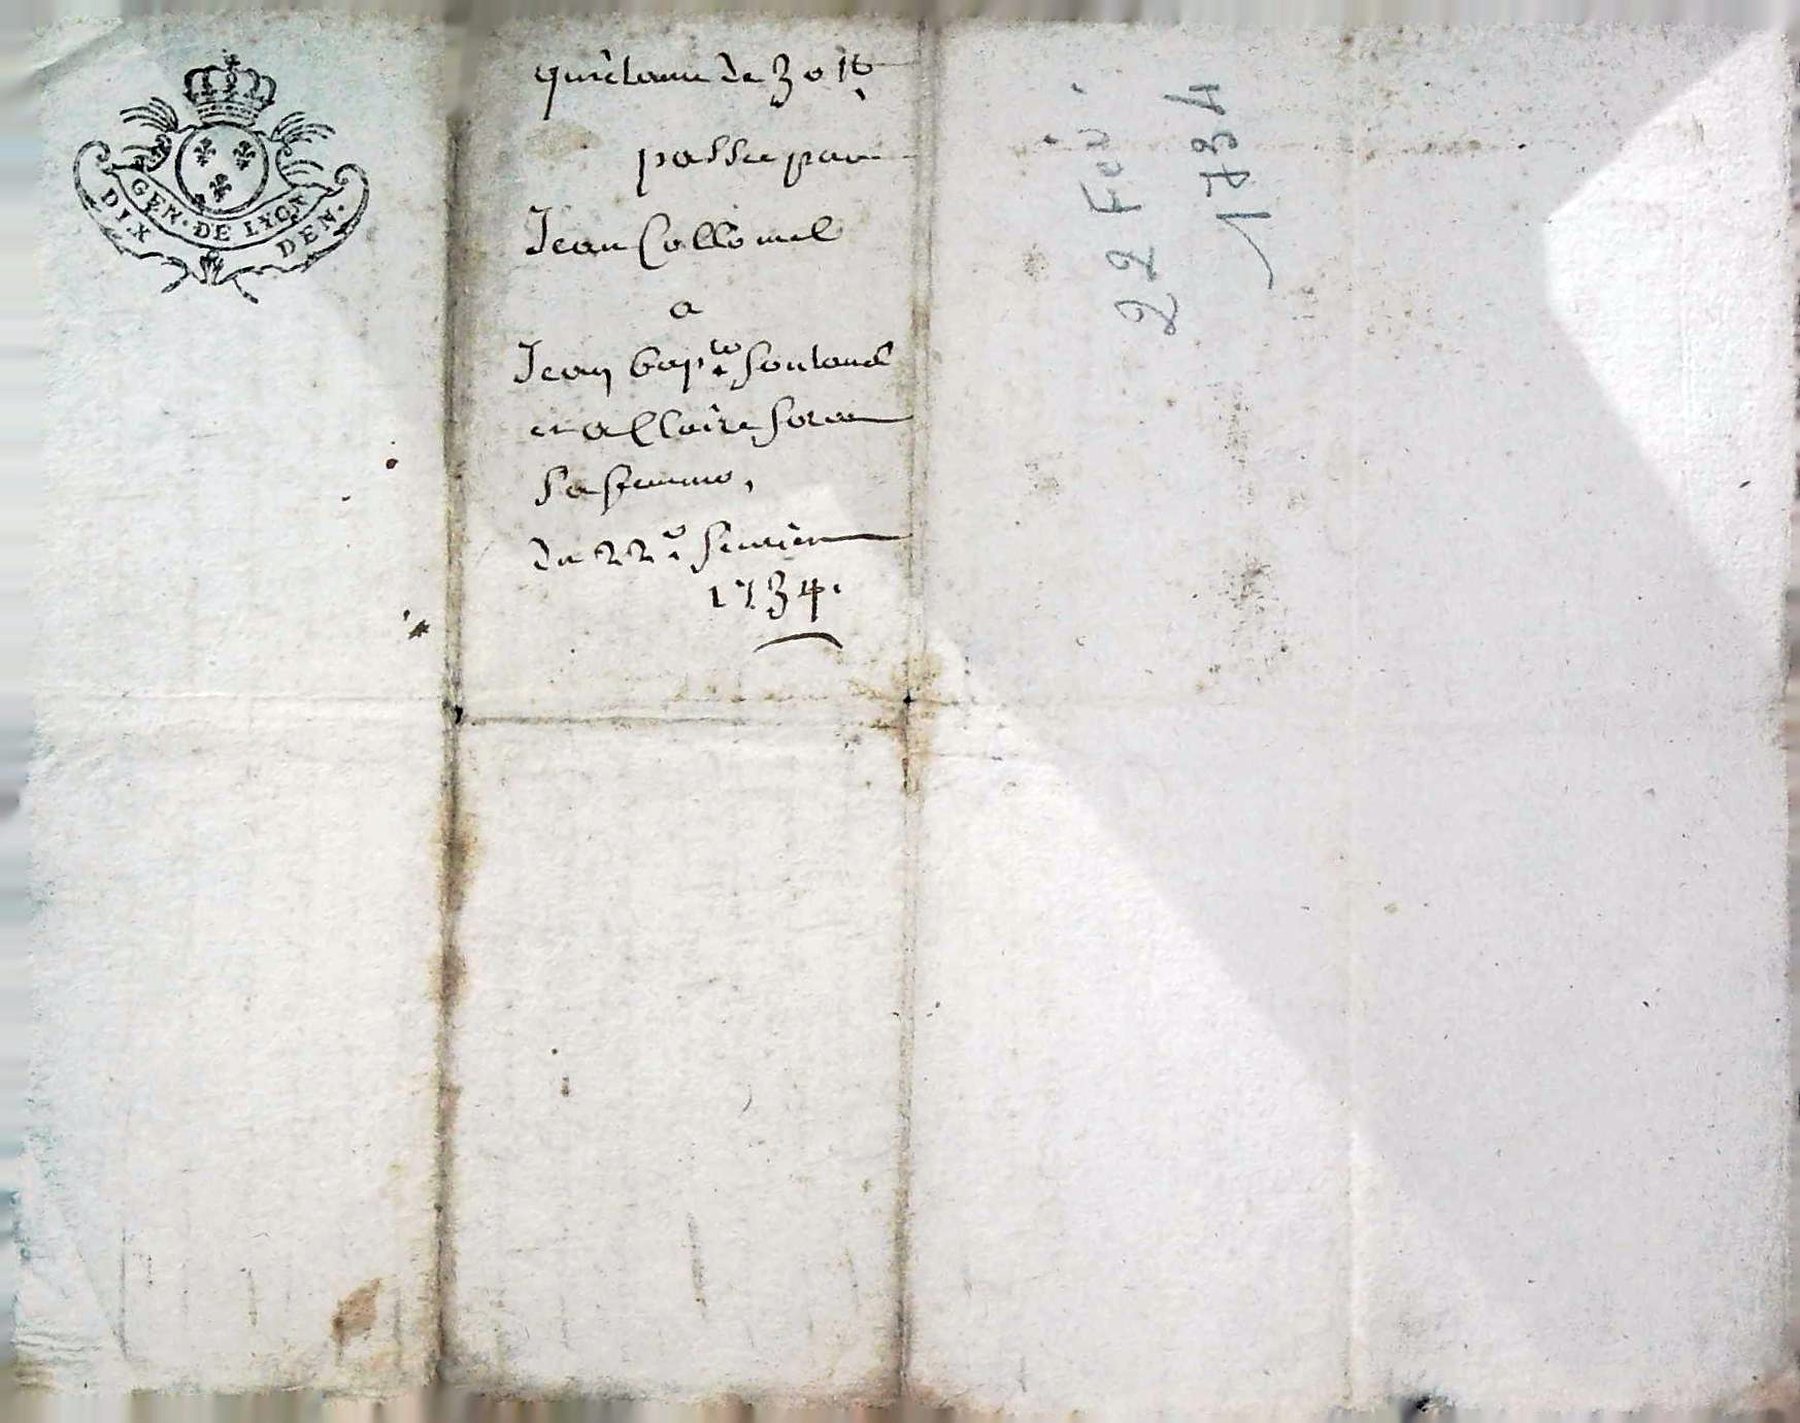 GEN. DE LYON
DIX DEN.
quictance de 30 lb
passee par
Jean Collomel
a
Jean bap.te
et a Claire
sa femme,
du 22.e feurier
1734.
22 Fev.
1734